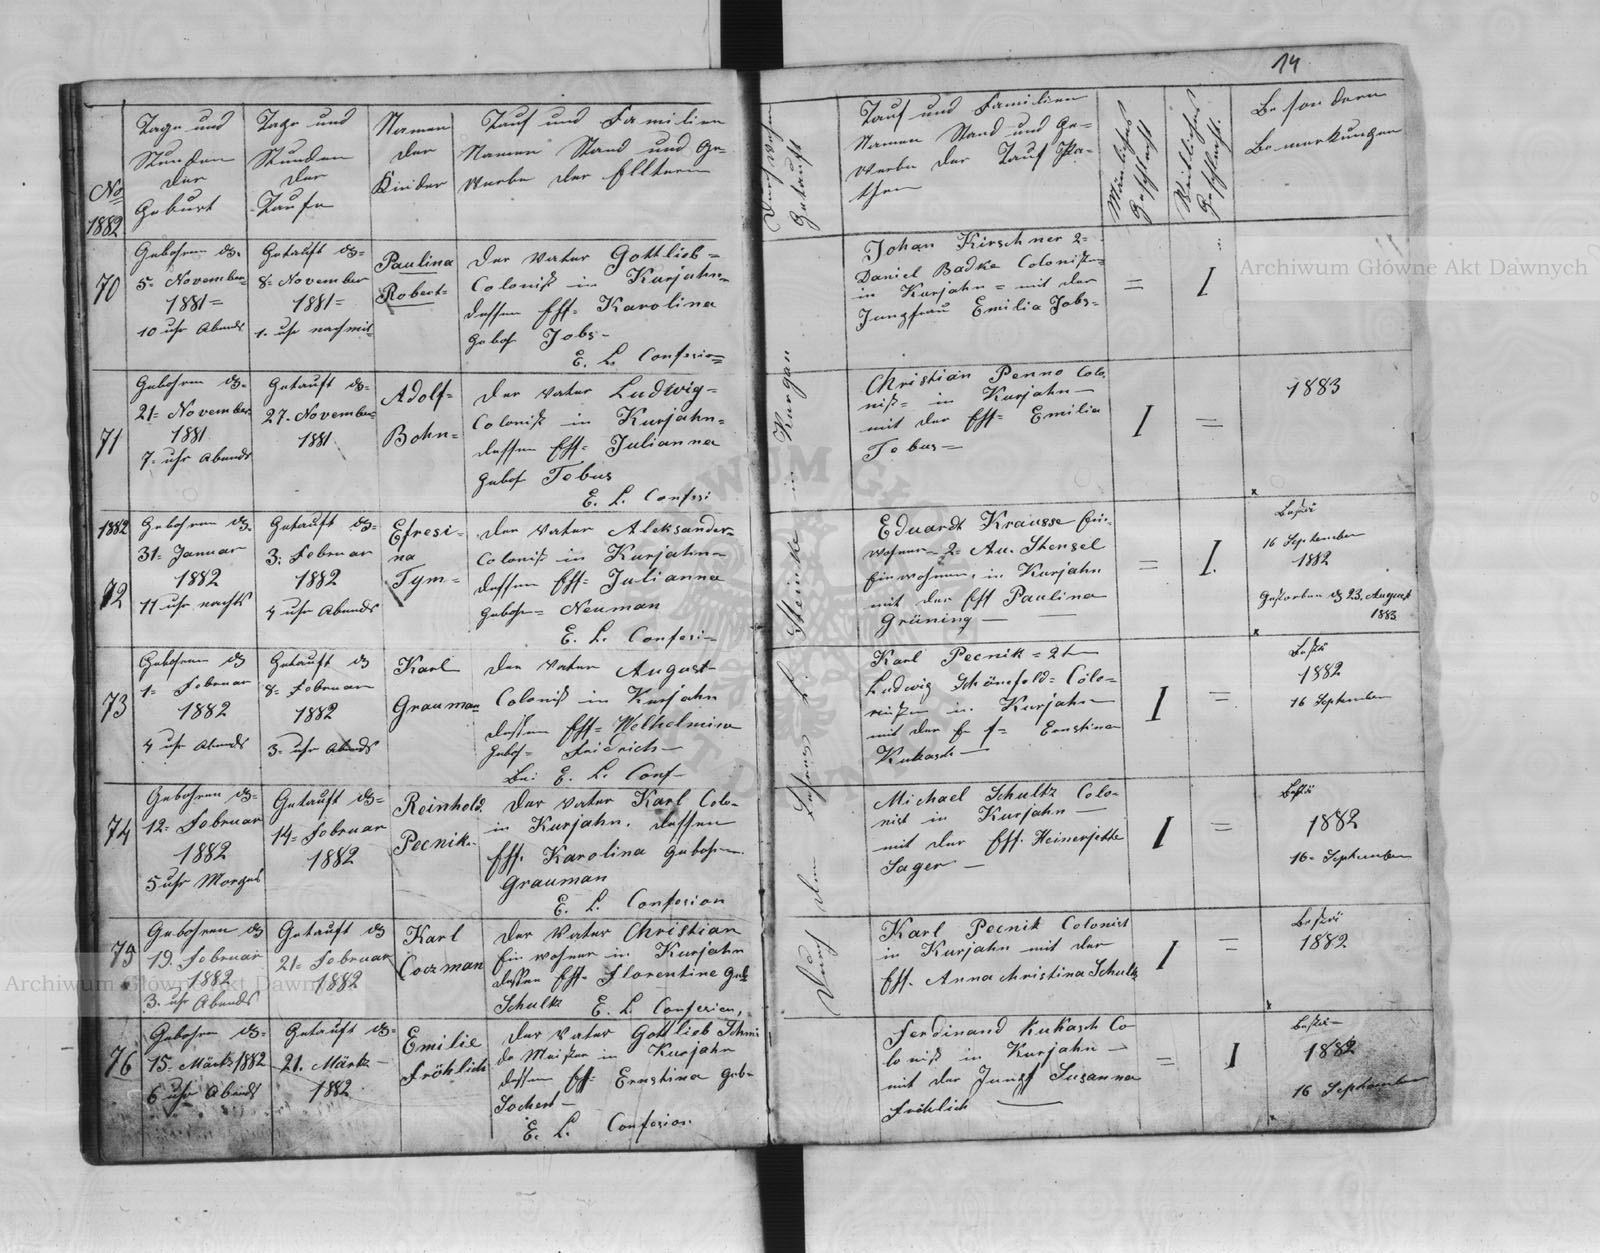 14
No
1882
Tage und
Stunden
der
Geburt
Tage und
Stunden
der
Taufe
Namen
der
Kinder
Tauf und Familien
Namen Stand und Ge-
werbe der Elltern
Getauft
Tauf und Familien
Namen Stand und Ge-
werbe der Tauf Pa-
then
Männliches
Geschlecht
Weibliches
Geschlecht.
Besondern
Bemerkungen
Durch den Lehrer L. Steinke in Kurgan
70
Gebohren d.
5= November
1881=
10 uhr Abends
Getauft d=
8= November
1881=
1. uhr nachmit=
Paulina
Robert=
Der Vater Gottlieb=
Colonist in Kurjahn=
dessen Ehf= Karolina
geboh Jobs-
E. L. Confesion=
Johan Kirschner 2=
Daniel Badke Colonisten=
in Kurjahn = mit der
Jungfrau Emilia Jobs-
=
I
71
Gebohren d=
21= November
1881
7. uhr Abends
Getauft d=
27. November
1881
Adolf=
Bohn=
Der Vater Ludwig=
Colonist in Kurjahn=
dessen Ehf= Julianna
geboh Tobus
E. L. Confesi
Christian Penno Colo
nist= in Kurjahn-
mit der Ehf= Emilia
Tobus-
I
=
1883
1882
72
Gebohren d.
31= Januar
1882
11 uhr nachts
Getauft d=
3. Februar
1882
4 uhr Abends
Efresi-
na
Tym=
Der Vater Aleksander=
Colonist in Kurjahn=
dessen Ehf= Julianna
gebohr= Neuman
E. L. Confesi-
Eduardt Krausse Ein-
wohner= 2= Au. Stensel
Einwohner, in Kurjahn
mit der Ehf Paulina
Grüning-
=
I.
16 September
1882
Gestorben d 23. August
1883
73
Gebohren d
1= Februar
1882
4 uhr Abends
Getauft d
8= Februar
1882
3= uhr Abends
Karl
Grauman
Der Vater August
Colonist in Kurjahn
dessen Ehf= Welhelmina
geboh= Friedrich-
Bei E. L. Conf-
Karl Pecnik = 2t-
Ludwig Schönefeld= Colo-
nisten in Kurjahn
mit der E f= Ernstina
Kukasch-
I
=
1882
16 September
74
Gebohren d=
12= Februar
1882
5 uhr Morges
Getauft d=
14= Februar
1882
Reinhold
Pecnik
Der Vater Karl Colo-
in Kurjahn. dessen
Ehf. Karolina gebohren
Grauman
E. L. Confesion
Michael Schultz Colo-
nist in Kurjahn-
mit der Ehf. Heinerjette
Sager-
I
=
1882
16= September
75
Gebohren d
19. Februar
1882
3. uhr Abends
Getauft d
21= Februar
1882
Karl
Coczman
Der Vater Christian
Einwohner in Kurjahn
dessen Ehf= Florentine geb
Schultz E. L. Confesion,
Karl Pecnik Colonist
in Kurjahn mit der
Ehf. Anna Christina Schultz
I
=
1882
76
Gebohren d=
15= Märtz 1882
6 uhr Abends
Getauft d=
21. Märtz-
1882
Emilie
Fröhlich
Der Vater Gottlieb Schmi
de Meister in Kurjahn
dessen Ehf= Ernstina geb=
Sochert-
E. L. Confesion
Ferdinand Kukasch Co
lonist in Kurjahn-
mit der Jungf Susanna
Fröhlich
=
I
1882
16 September
Archiwum Główne Akt Dawnych
Archiwum Główne Akt Dawnych